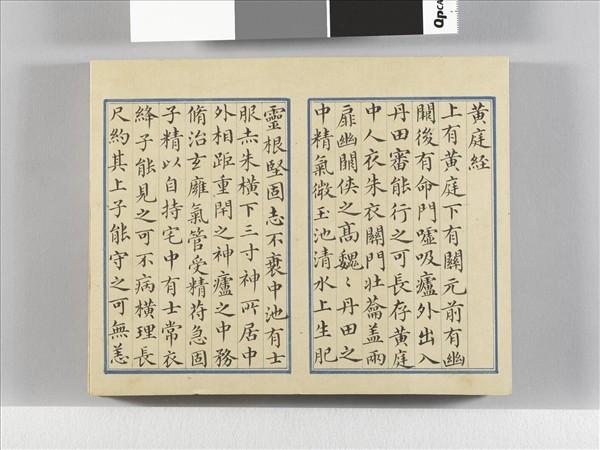 黃庭經
上有黃庭下有關元前有幽
闕後有命門噓吸廬外出入
丹田審能行之可長存黃庭
中人衣朱衣關門壯蘥蓋兩
扉幽闕俠之高魏〻丹田之
中精氣微玉池清水上生肥
靈根堅固志不衰中池有士
服赤朱橫下三寸神所居中
外相距重閇之神廬之中務
脩治玄廱氣管受精苻急固
子精以自持宅中有士常衣
絳子能見之可不病橫理長
尺約其上子能守之可無恙
QpCA